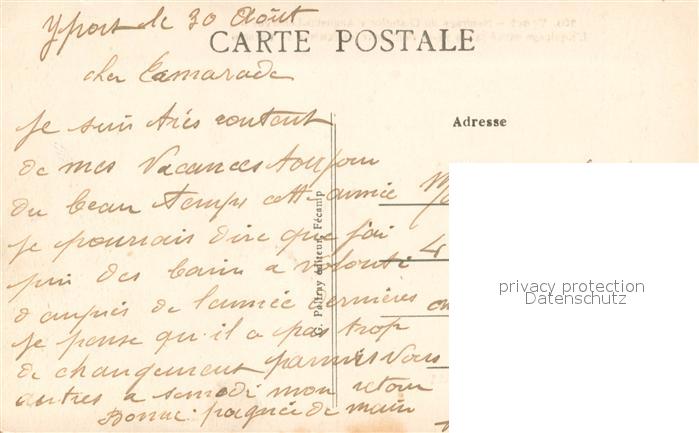 Yport le 30 Août
CARTE POSTALE
cher Camarade
Adresse
je suis très content
de mes Vacances toujour
du beau temps cette année
je pourrais dire que j'ai
pris des bains a volonté
d'auprès de l'année dernières
je pense qu'il a pas trop
de changement parmis vous
autres a samedi mon retour
Bonne poignée de main
G. Poitray éditeur, Fécamp
privacy protection
Datenschutz